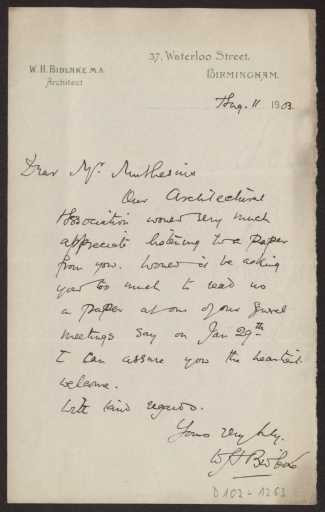 W. H. BIDLAKE M.A.
Architect
37, Waterloo Street,
BIRMINGHAM.
Aug. 11 1903.
Dear Mr. Muthesius
Our Architectural
Association would very much
appreciate listening to a paper
from you. Would it be asking
you too much to read us
a paper at one of our
meetings say on Jan 29th
I can assure you the heartiest
welcome.
With kind regards.
Yours very truly.
W H Bidlake
D 102-1263